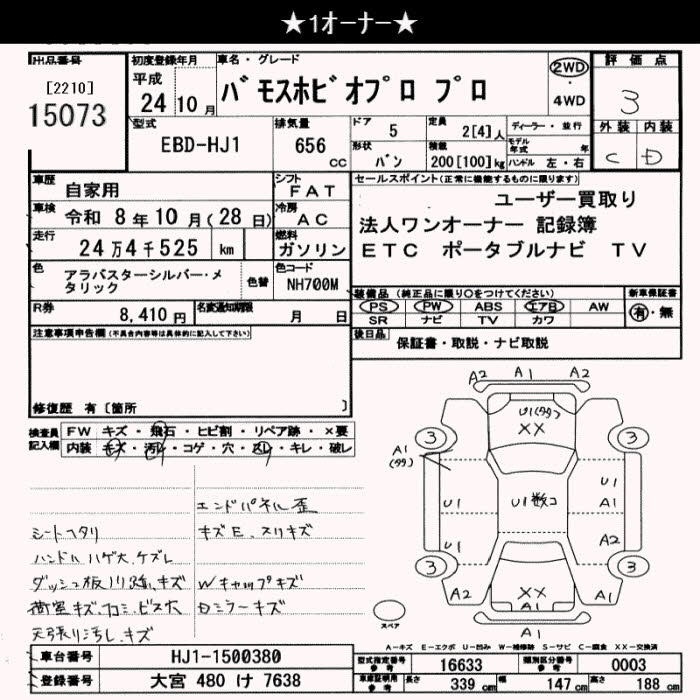 ★1オーナー★
出品番号 初度登録年月 車名・グレード 評価点
[2210] 平成 2WD
15073 24 10月 バモスホビオプロ プロ ・ 3
4WD
型式 排気量 ドア 定員 ディーラー・並行 外装 内装
EBD-HJ1 656 cc 5 2[4]人 モデル年式 年 C D
形状 積載
バン 200[100]kg ハンドル 左・右
車歴 自家用 シフト FAT セールスポイント(正常に機能するものに限ります)
車検 令和 8年10月(28日) 冷房 AC ユーザー買取り
走行 24万4千525 km 燃料 ガソリン 法人ワンオーナー 記録簿
ETC ポータブルナビ TV
色 アラバスターシルバー・メタリック 色替 色コード NH700M
装備品 (純正品に限り○をつけてください) 新車保証書
R券 8,410円 名変通知期限 月 日 PS PW ABS エアB AW 有・無
SR ナビ TV カワ
注意事項申告欄(不具合内容等は具体的に記入して下さい) 後日品 保証書・取説・ナビ取説
修復歴 有〔箇所 〕
検査員記入欄 FW キズ・飛石・ヒビ割・リペア跡・×要
内装 キズ・汚れ・コゲ・穴・スレ・キレ・破レ
エンドパネル歪
シートヘタリ キズE、スリキズ
ハンドルハゲ大、ケズレ
ダッシュ板ノリ跡、キズ Wキャップキズ
荷室キズ、凹ミ、ビス穴 Dミラーキズ
天張り汚し、キズ
A2 A1 A2
U1(タタ)
XX
3 3
A1
(タタ) U1
U1 U1数コ A1
U1 A2
3 3
A2 XX A1
A1
スペア
A-キズ E-エクボ U-凹み W-補修跡 S-サビ C-腐食 XX-交換済
車台番号 HJ1-1500380 型式指定番号 参考 16633 類別区分番号 参考 0003
登録番号 大宮 480 け 7638 車庫証明用 参考 長さ 339 cm 幅 147 cm 高さ 188 cm